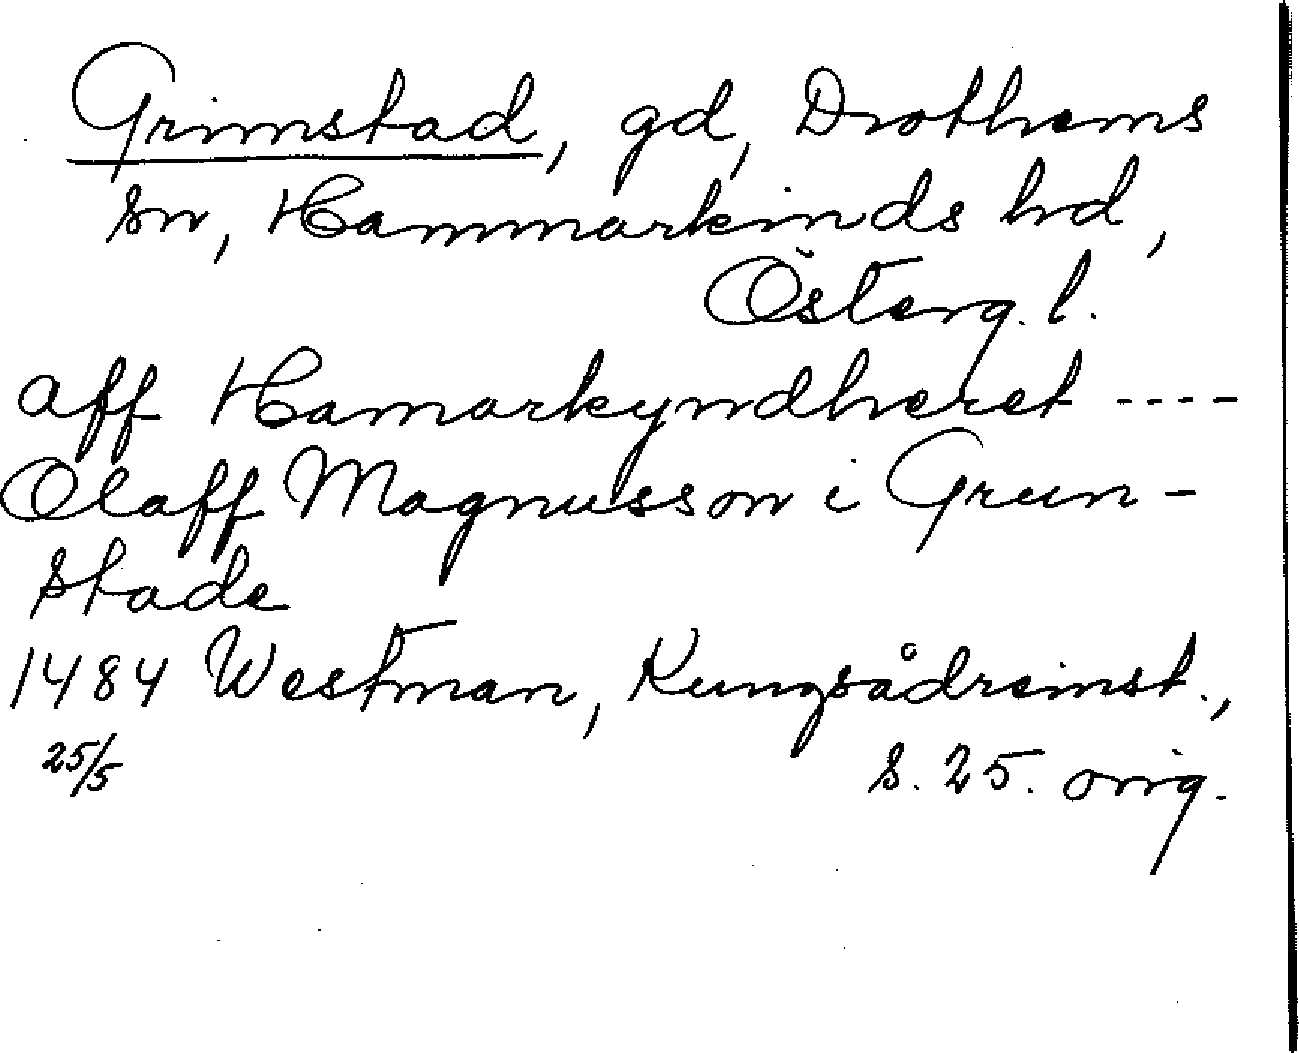 Grimstad, gd, Drothems
sn, Hammarkinds hd,
Österg. l.
aff Hamarkyndheret ----
Olaff Magnusson i Grun-
stade
1484 Westman, Kungsådreinst.,
25/5 s. 25. orig.